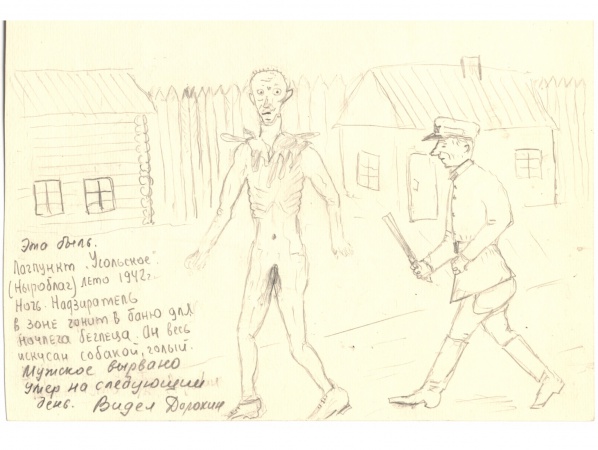 Это быль.
Лагпункт "Усольское".
(Ныроблаг) лето 1942 г.
Ночь. Надзиратель
в зоне гонит в баню для
ночлега беглеца. Он весь
искусан собакой, голый.
Мужское вырвано
Умер на следующий
день. Видел Дорохин